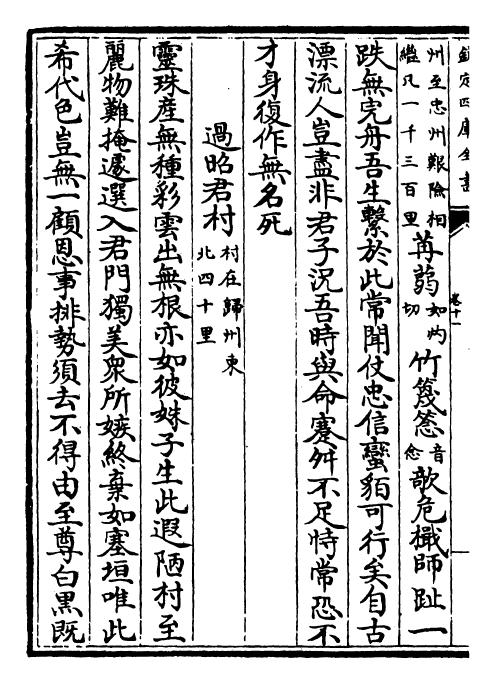 欽定四庫全書
卷十一
州至忠州艱險相繼凡一千三百里苒蒻如灼切竹篾䉞音念欹危檝師趾一
跌無完舟吾生繫於此常聞仗忠信蠻貊可行矣自古
漂流人豈盡非君子況吾時與命蹇舛不足恃常恐不
才身復作無名死
過昭君村村在歸州東北四十里
靈珠產無種彩雲出無根亦如彼姝子生此遐陋村至
麗物難掩遽選入君門獨美衆所嫉終棄如塞垣唯此
希代色豈無一顧恩事排勢須去不得由至尊白黑既